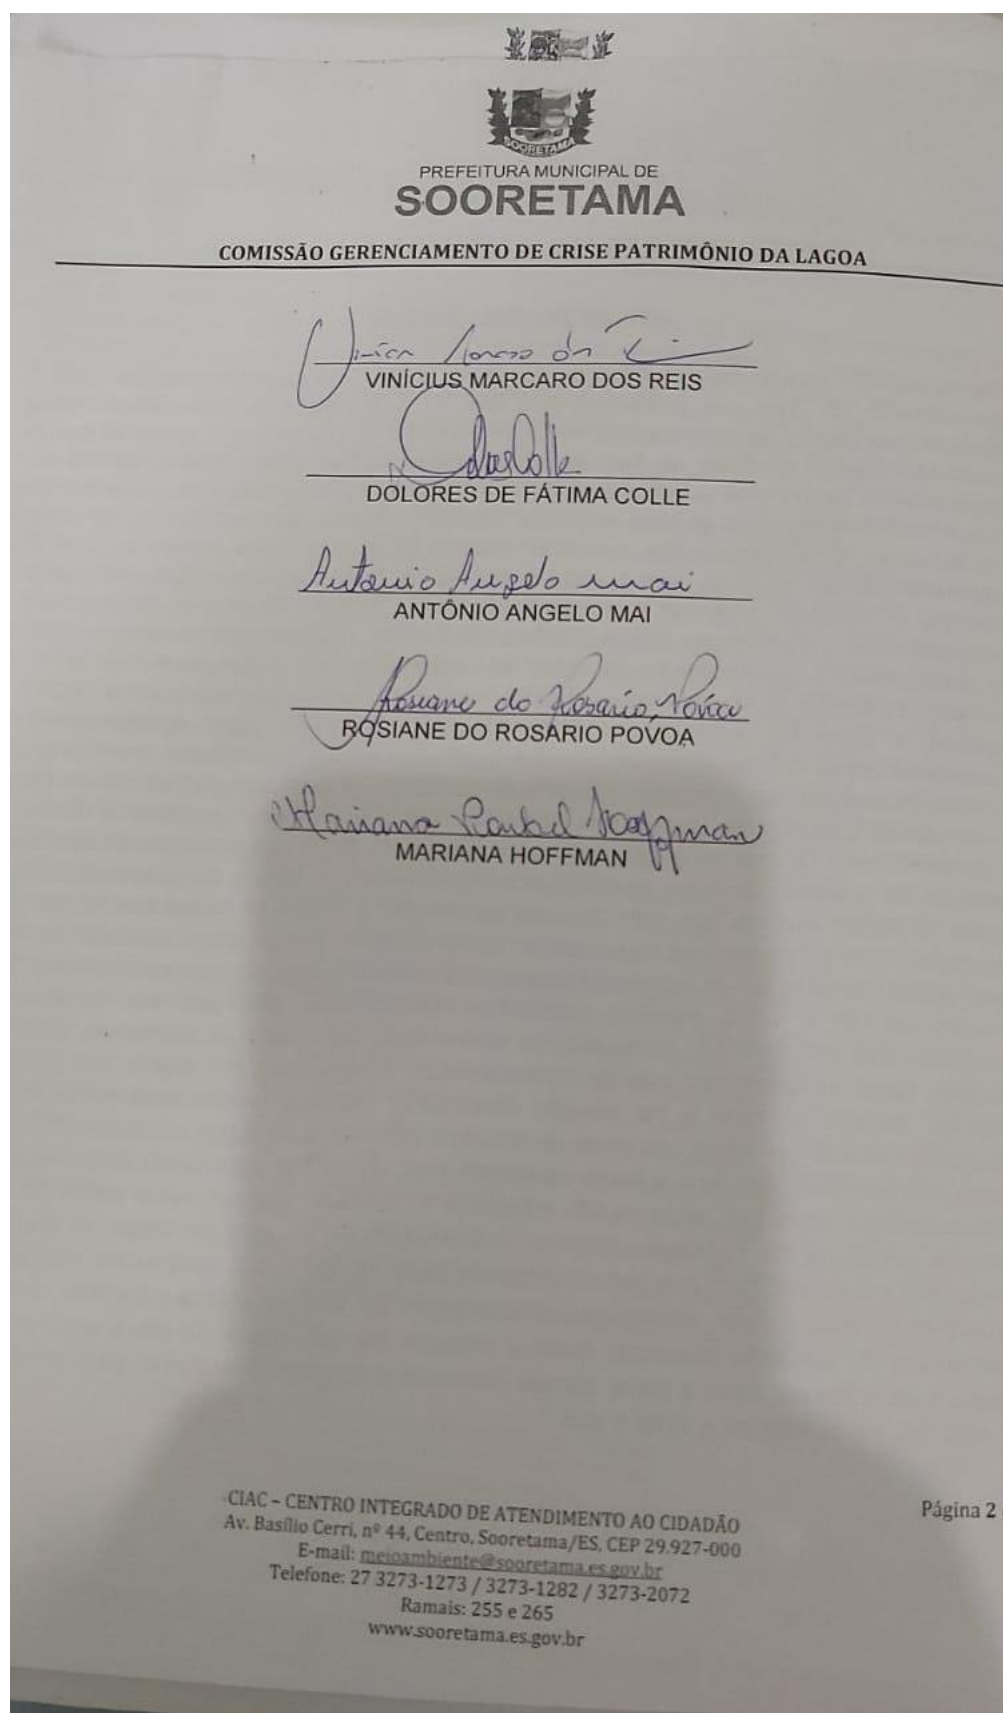 SOORETAMA
PREFEITURA MUNICIPAL DE
SOORETAMA
COMISSÃO GERENCIAMENTO DE CRISE PATRIMÔNIO DA LAGOA
VINÍCIUS MARCARO DOS REIS
DOLORES DE FÁTIMA COLLE
Antonio Angelo mai
ANTÔNIO ANGELO MAI
Rosiane do Rosario Póvoa
ROSIANE DO ROSÁRIO POVOA
Mariana Hoffman
MARIANA HOFFMAN
CIAC – CENTRO INTEGRADO DE ATENDIMENTO AO CIDADÃO
Av. Basílio Cerri, nº 44, Centro, Sooretama/ES, CEP 29.927-000
E-mail: meioambiente@sooretama.es.gov.br
Telefone: 27 3273-1273 / 3273-1282 / 3273-2072
Ramais: 255 e 265
www.sooretama.es.gov.br
Página 2